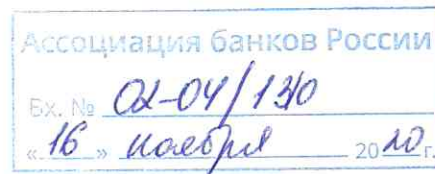 Ассоциация банков России
Вх. № 02-04/1310
«16» ноября 2020 г.